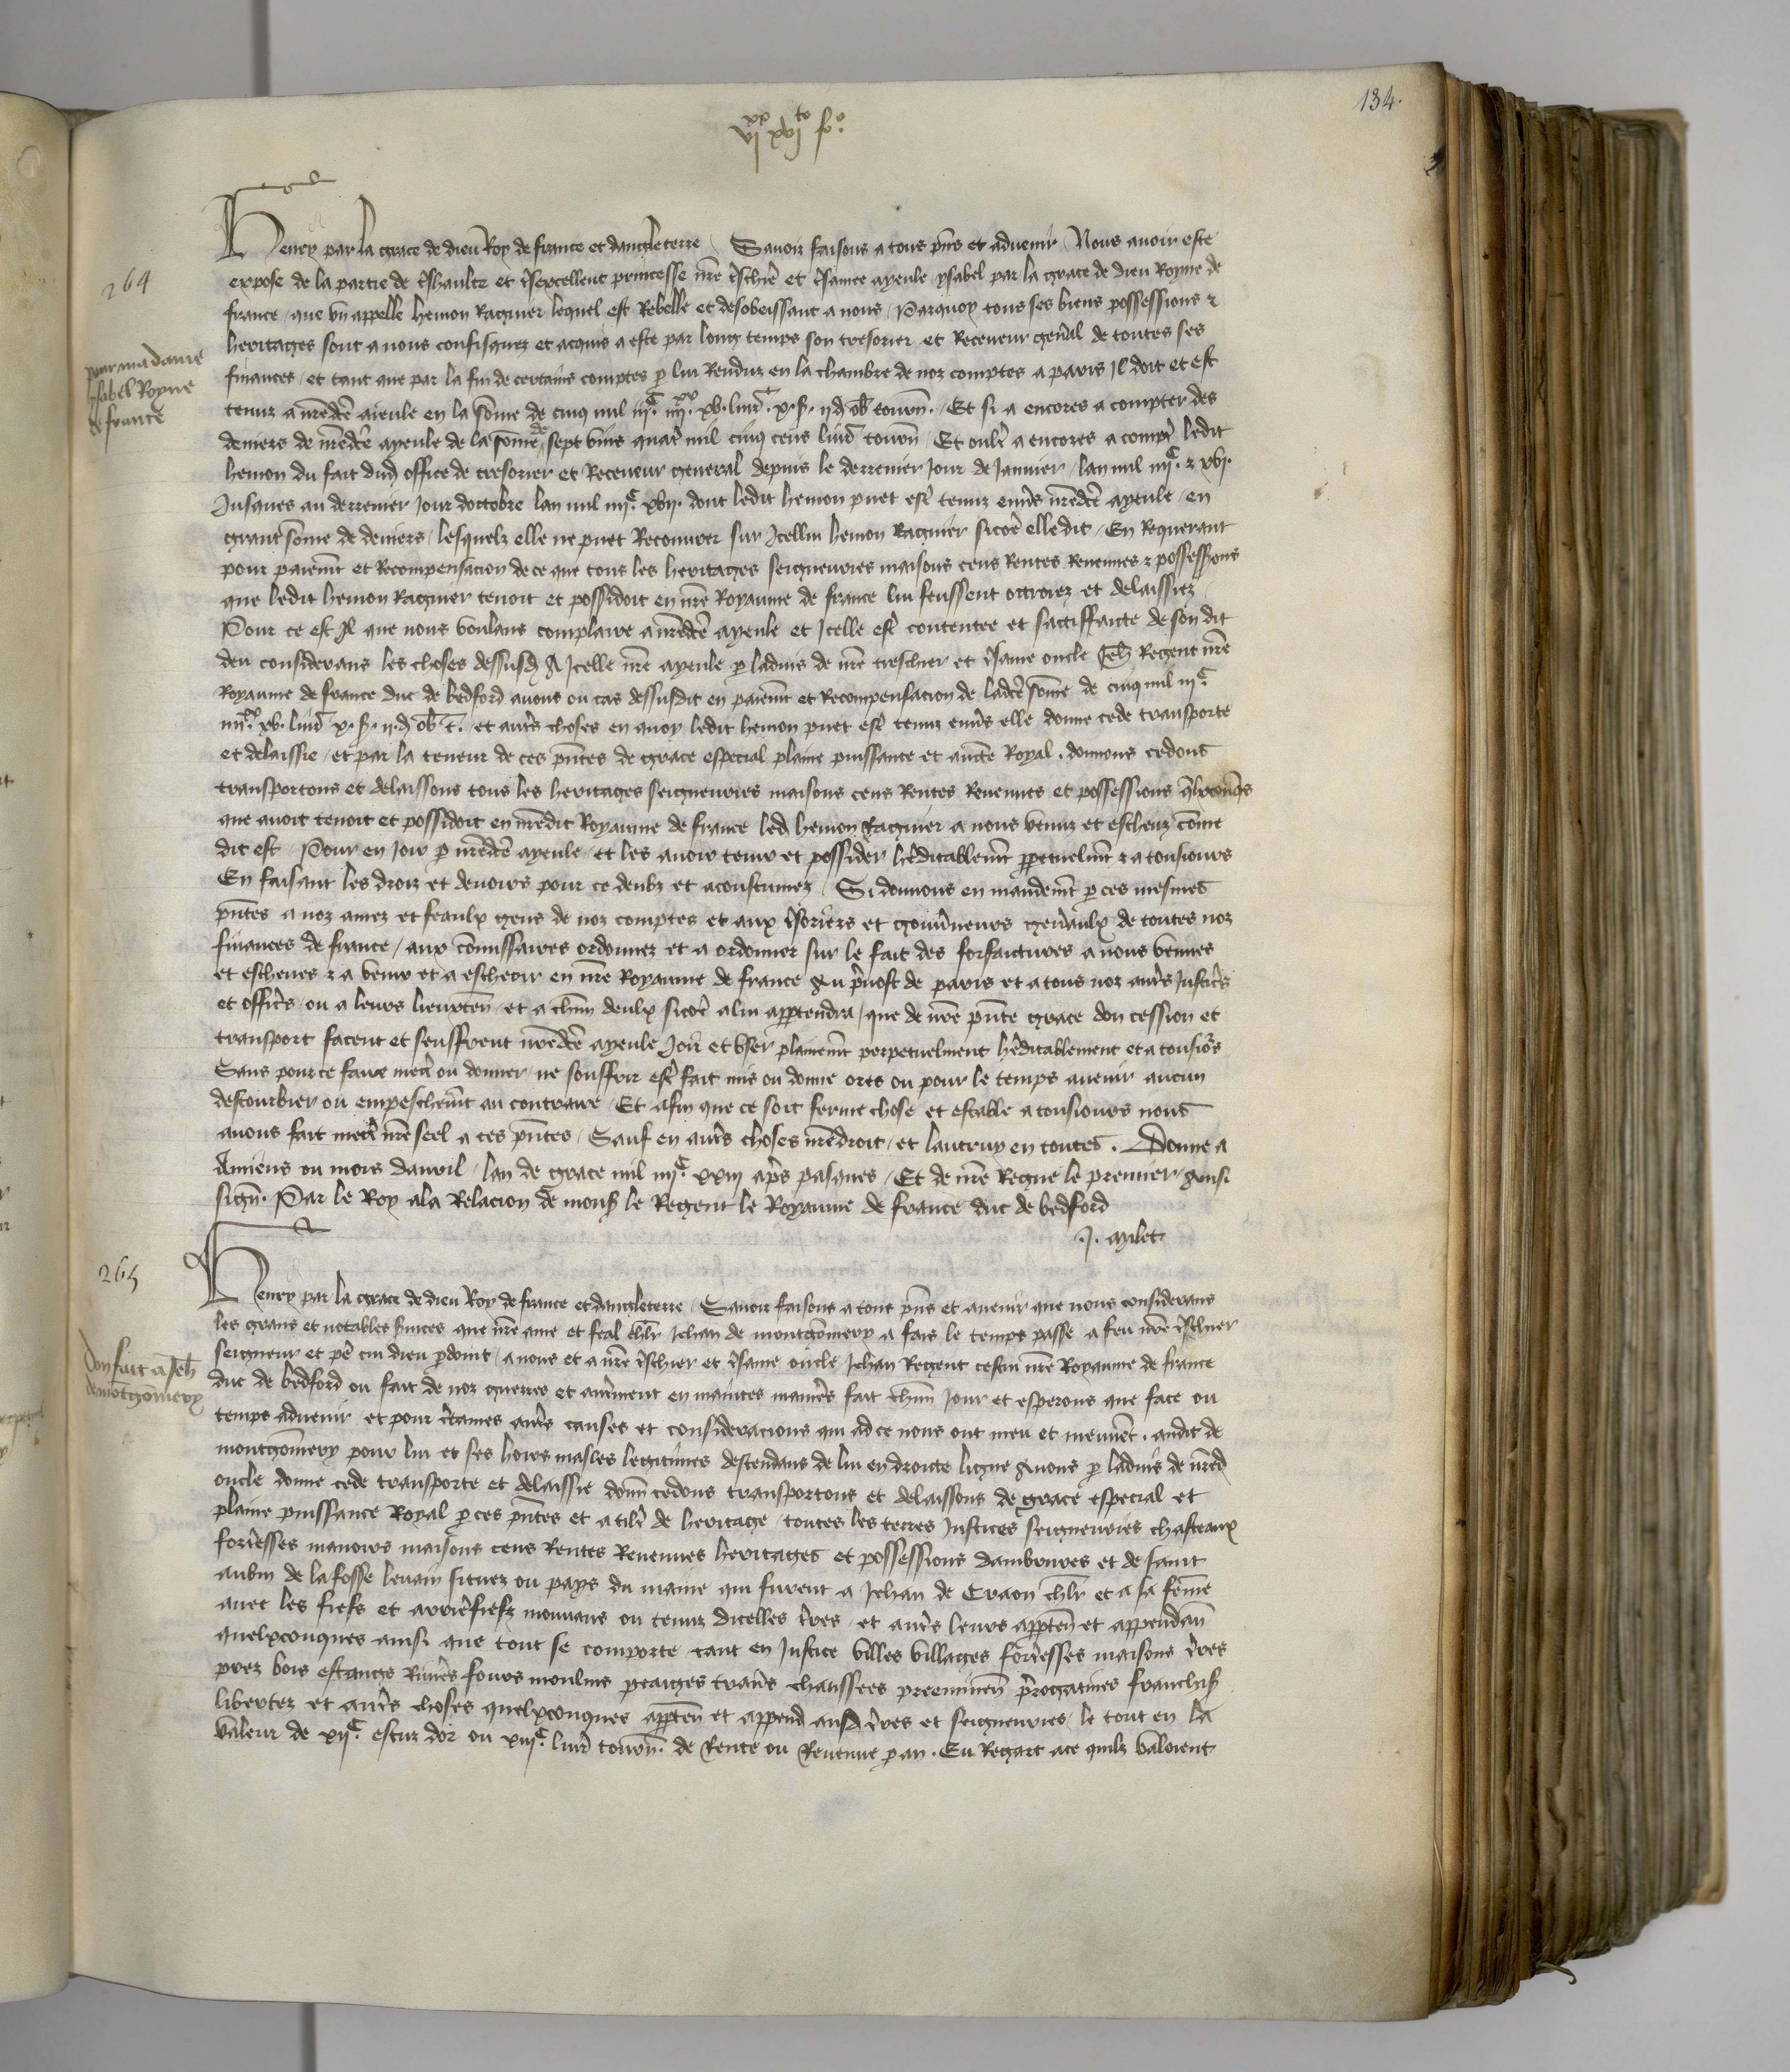 134.
vi xx xvi to fo.
264
Henry par la grace de dieu Roy de france et dangleterre Savoir faisons a tous pns et advenir Nous avoir este
expose de la partie de tshaulte et tsexcellent princesse nre tschie et tsamee ayeule ysabel par la grace de dieu Royne de
france que un appelle hemon Raguier lequel est Rebelle et desobeissant a nous Parquoy tous ses biens possessions et
heritages sont a nous confisquez et acquis a este par long temps son tresorier et Receveur genal de toutes ses
pour madame
ysabel Royne
de france
finances et tant que par la fin de certains comptes p lui Renduz en la chambre de noz comptes a paris Il doit et est
tenuz a nredce aieule en la some de cinq mil iii C. iiii xx. xv. liur. x. s. ii d ob tourn. Et si a encores a compter des
deniers de nredce ayeule de la some de sept vins quatre mil cinq cens liur tourn Et oultre a encores a compter ledit
hemon du fait dud office de tresorier et Receveur general depuis le derrenier Jour de Janvier lan mil iiii C. et xvi.
Jusques au derrenier Jour doctobre lan mil iiii C. xvii. dont ledit hemon puet estre tenuz envs nredce ayeule en
grant some de deniers lesquelz elle ne puet Recouvrer sur Icellui hemon Raguier sicoe elle dit En Requerant
pour paiemt et Recompensacion de ce que tous les heritages seigneuries maisons cens Rentes Revenues et possessions
que ledit hemon Raguier tenoit et possidoit en nre Royaume de france lui feussent octroiez et delaissiez
Pour ce est Il que nous voulans complaire a nredce ayeule et Icelle estre contentee et satiffaicte de son dit
deu considerans les choses dessusd A Icelle nre ayeule p ladvis de nre treschier et tsame oncle Jeh Regent nre
Royaume de france duc de bedford avons ou cas dessusdit en paiemt et Recompensacion de ladce some de cinq mil iii C.
iiii xx. xv. liur x. s. ii. d ob t. et autrs choses en quoy ledit hemon puet estre tenuz envs elle donne cede transporte
et delaissie et par la teneur de ces pntes de grace especial plaine puissance et aucte Royal donnons cedons
transportons et delaissons tous les heritages seigneuries maisons cens Rentes Revenues et possessions qlxconqs
que avoit tenoit et possidoit en nredit Royaume de france led hemon Raguier a nous venuz et escheuz come
dit est Pour en Joir p nredce ayeule et les avoir tenir et possider heditablemt ppetuelmt et a tousiours
En faisant les droiz et devoirs pour ce deubz et acoustumez Si donnons en mandemt p ces mesmes
pntes a noz amez et feaulx gens de noz comptes et aux tsoriers et gouvneurs genaulx de toutes noz
finances de france aux comissaires ordonnez et a ordonner sur le fait des forfaictures a nous venues
et escheues et a venir et a escheoir en nre Royaume de france Au pvost de paris et a tous noz autrs Justicrs
et officrs ou a leurs lieuxten et a chun deulx sicoe a lui apptendra que de nre pnte grace don cession et
transport facent et seuffrent nredce ayeule Joir et user plainemt perpetuelment heditablement et a tousiors
Sans pource faire mectre ou donner ne souffrir estre fait mis ou donne ores ou pour le temps avenir aucun
destourbier ou empeschemt au contraire Et afin que ce soit ferme chose et estable a tousiours nous
avons fait mectre nre seel a ces pntes Sauf en autrs choses nre droit et lautruy en toutes. Donne a
Amiens ou mois davril lan de grace mil iiii C. xxiii apres pasques Et de nre Regne le premier Ainsi
sign. Par le Roy a la Relacion de mons le Regent le Royaume de france duc de bedford
J. milet
265
Henry par la grace de dieu Roy de france et dangleterre Savoir faisons a tous pns et avenir que nous considerans
les grans et notables svices que nre ame et feal chlr Jehan de montgomery a fais le temps passe a feu nre tschier
don fait a Jeh
de motgomery
seigneur et pe cui dieu pdoint a nous et a nre tschier et tsame oncle Jehan Regent cestui nre Royaume de france
duc de bedford ou fait de noz guerres et autrement en maintes manies fait chun Jour et esperons que face ou
temps advenir et pour ctaines autrs causes et consideracions qui ad ce nous ont meu et meuvent. audit de
montgomery pour lui et ses hoirs masles legitimes descendans de lui en droicte ligne Avons p ladvis de nred
oncle donne cede transporte et delaissie donn cedons transportons et delaissons de grace especial et
plaine puissance Royal p ces pntes et a tile de heritage toutes les terres Justices seigneuries chasteaux
fortresses manoirs maisons cens Rentes Revenues heritages et possessions dambrieres et de saint
aubin de la fosse levain situez ou pays du maine qui furent a Jehan de Craon chlr et a sa feme
avec les fiefs et arrierefiefz mouvans ou tenuz dicelles tres et autrs leurs appten et appendan
quelxconques ainsi que tout se comporte tant en Justice villes villages fortresses maisons tres
prez bois estangs Rivies fours moulins peaiges travs chaussees preeminen progatives franchis
libertez et autrs choses quelxconques appten et append ausd tres et seigneuries le tout en la
valeur de xii C. escuz dor ou xviii C. liur tourn. de Rente ou Revenue p an. Eu Regart a ce quilz valoient